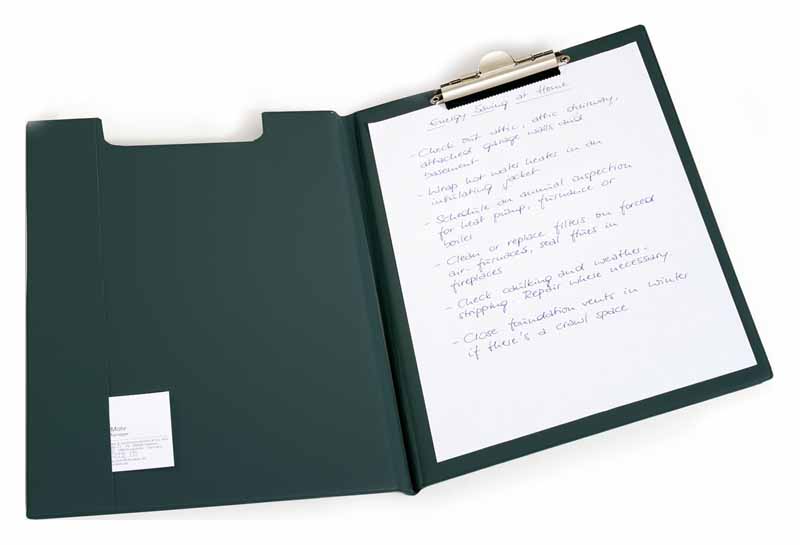 Energy Saving at Home
- Check out attic, attic stairway,
attached garage walls and
basement
- Wrap hot water heater in an
insulating jacket
- Schedule an annual inspection
for heat pump, furnance or
boiler
- Clean or replace filters on forced
air-furnaces, seal flues in
fireplaces
- Check caulking and weather-
stripping. Repair where necessary
- Close foundation vents in winter
if there's a crawl space
Mohr